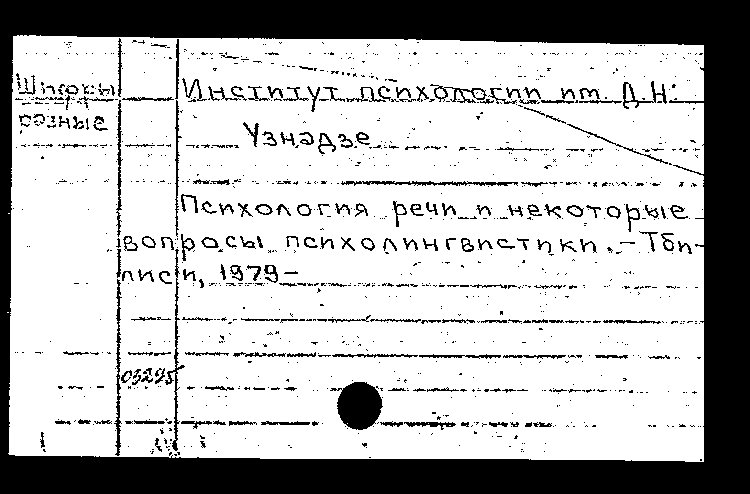 Шифры
разные
Институт психологии им. Д.Н.
Узнадзе
Психология речи и некоторые
вопросы психолингвистики. – Тби-
лиси, 1979 –
03295